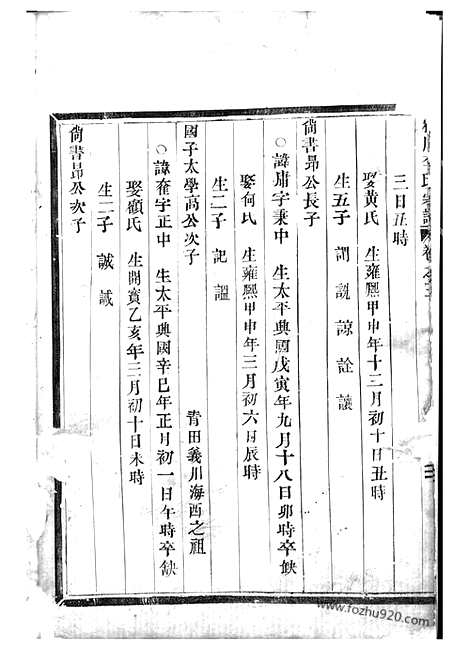 三日丑時
娶黃氏 生雍熙甲申年十二月初十日丑時
生五子 謂 諒詮讓
尙書昴公長子
○諱庸字秉中 生太平興國戊寅年九月十八日卯時卒缺
娶何氏 生雍熙甲申年三月初六日辰時
生二子 記
國子太學高公次子 青田義川海西之祖
○諱奮字正中 生太平興國辛巳年正月初一日午時卒缺
娶 氏 生開寶乙亥年三月初十日未時
生二子 誠
尙書昴公次子
www.fozhu920.com